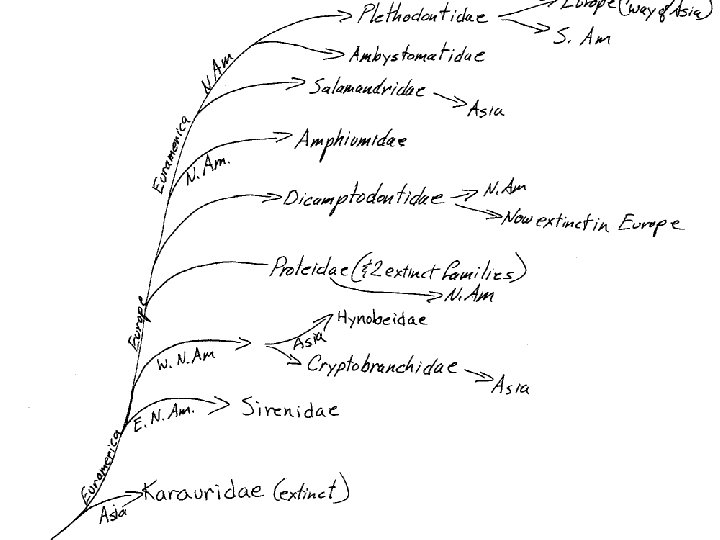 Europe (way of Asia)
Plethodontidae
S. Am
N. Am
Ambystomatidae
Salamandridae
Asia
Euramerica
Amphiumidae
N. Am.
Dicamptodontidae
N. Am
Now extinct in Europe
Proteidae (& 2 extinct families)
N. Am
Europe
Hynobeidae
Asia
W. N. Am
Cryptobranchidae
Asia
E. N. Am.
Sirenidae
Euramerica
Karauridae (extinct)
Asia